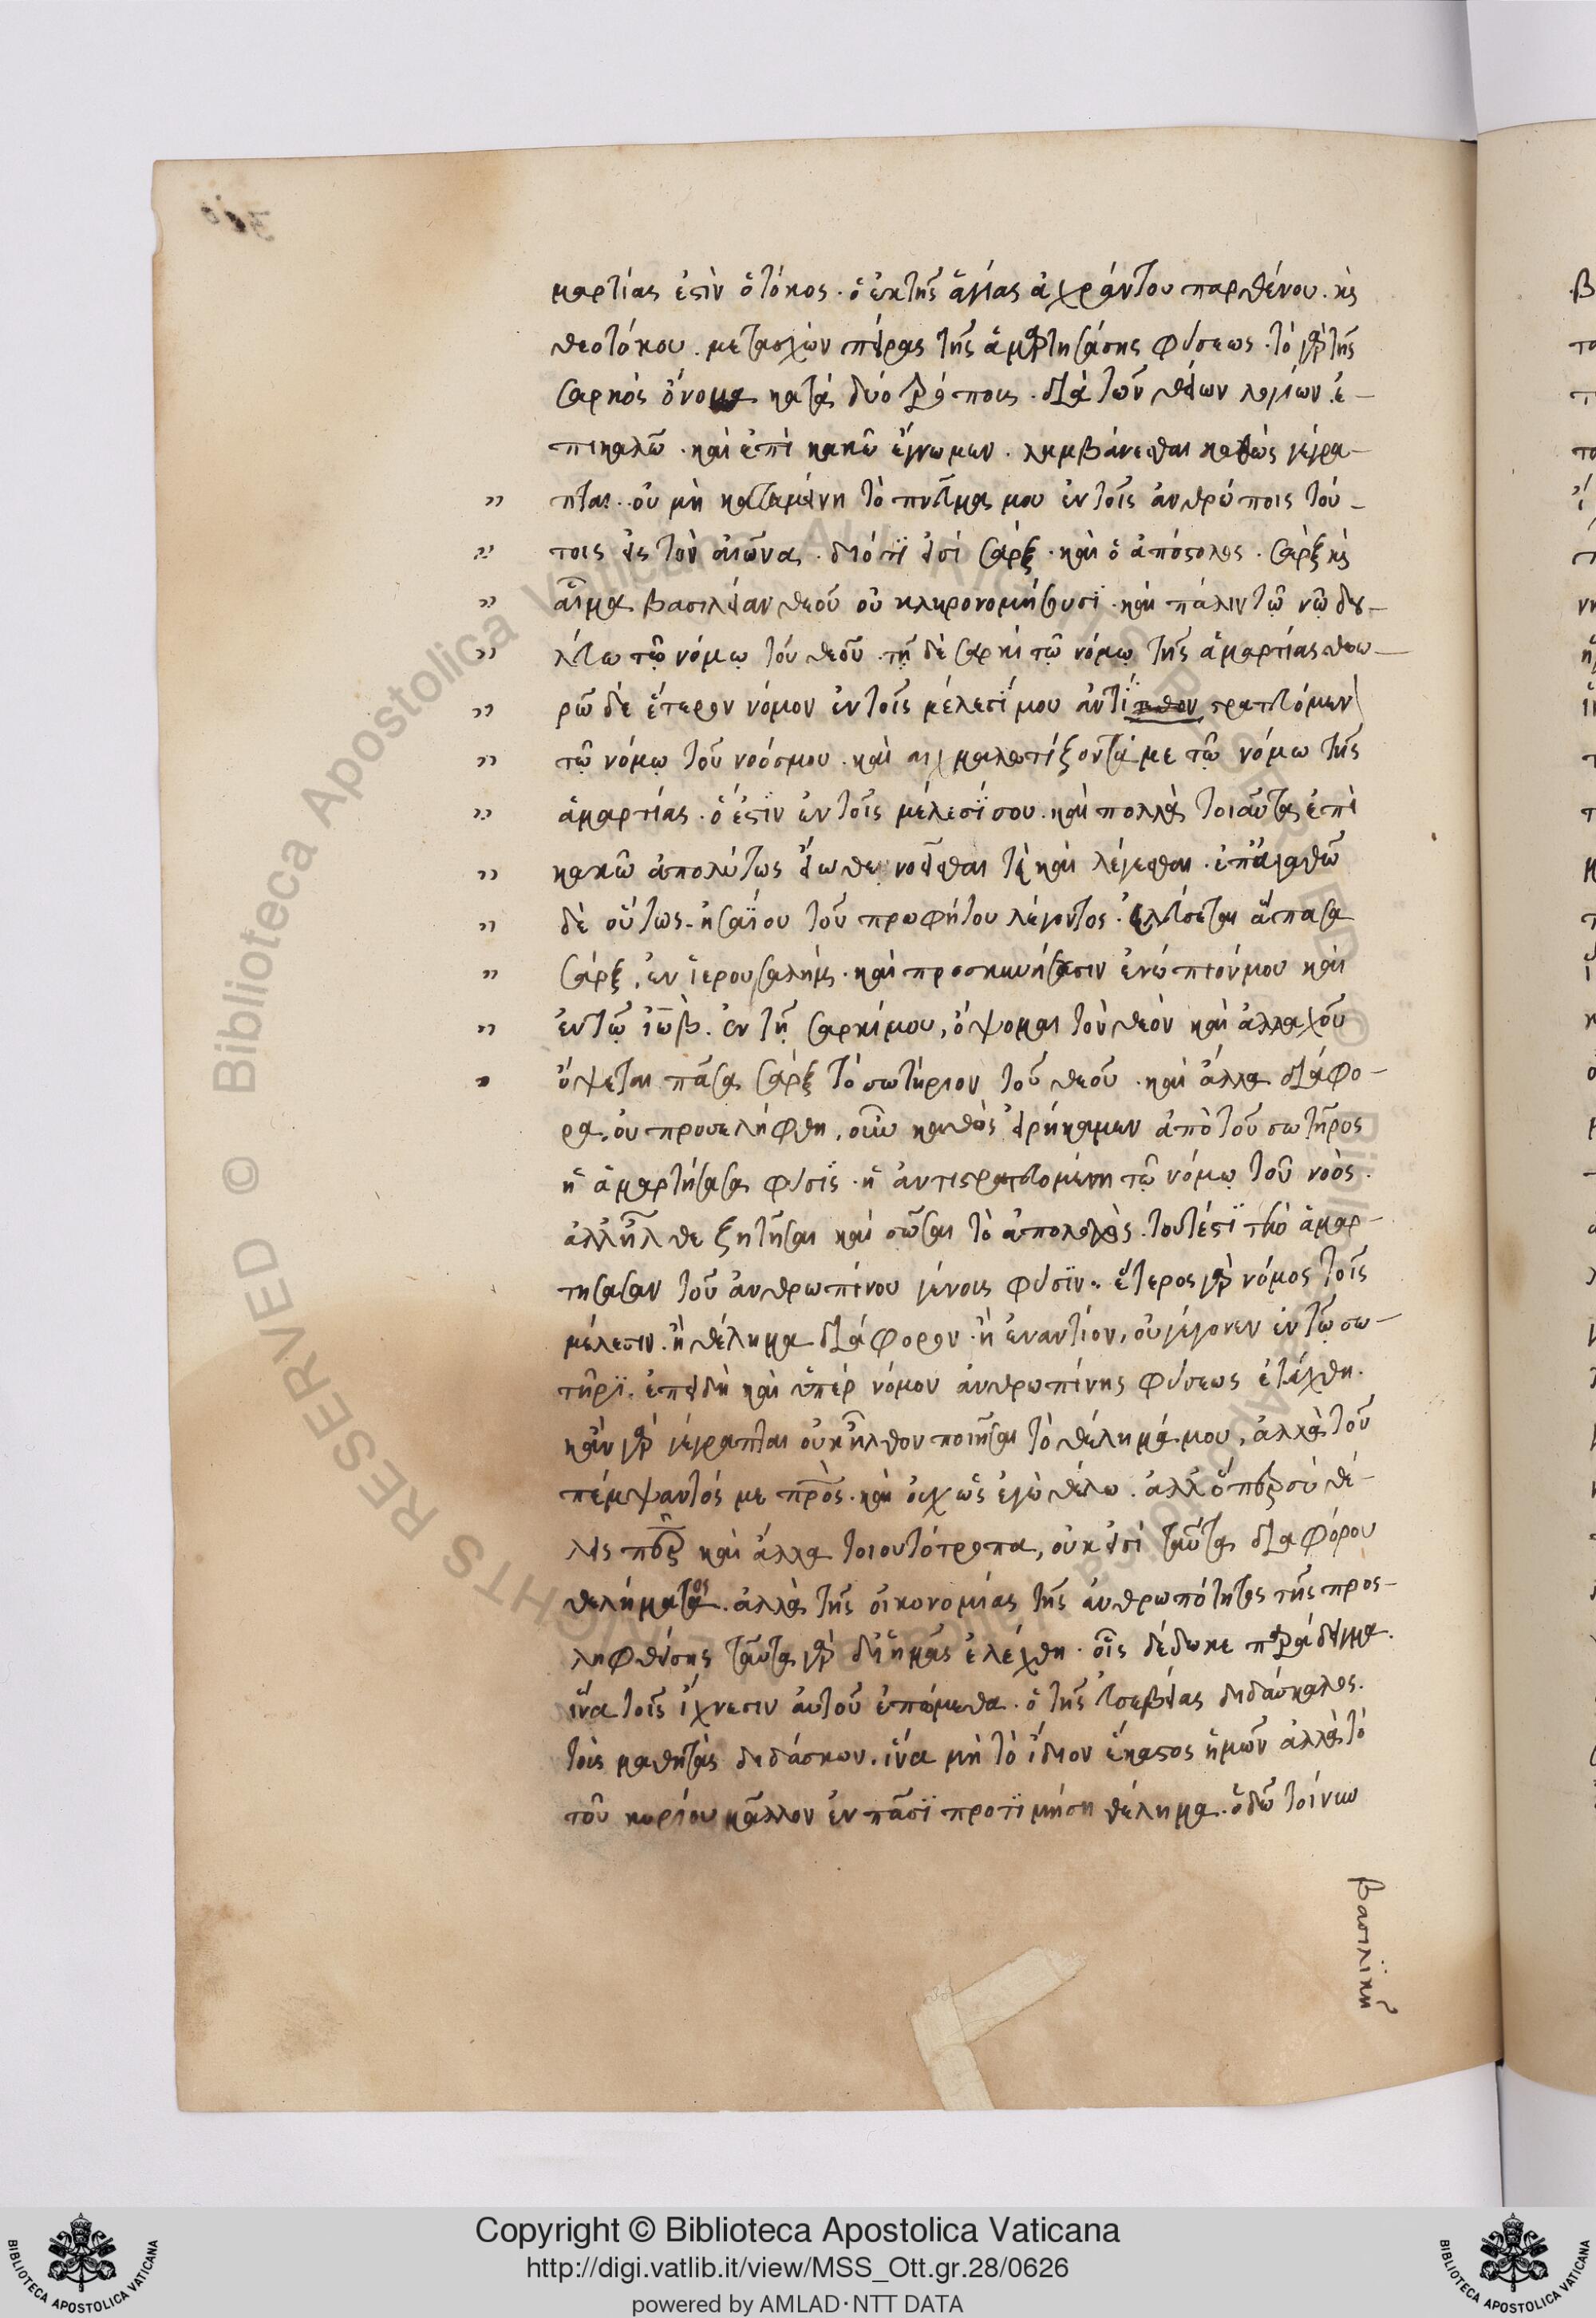 μαρτίας ἐστὶν ὁ τόκος · ὁ ἐκ τῆς ἁγίας ἀχράντου παρθένου · κὶ
θεοτόκου · μετασχὼν πείρας τῆς ἁμαρτησάσης φύσεως · τὸ γὰρ τῆς
σαρκὸς ὄνομα κατὰ δύο τρόπους · διὰ τῶν θείων λογίων ἐ-
πι καλῶ · καὶ ἐπὶ κακῶ ἔγνωμεν · λαμβάνεσθαι καθὼς γέγρα-
πται · οὐ μὴ καταμείνη τὸ πνεῦμα μου ἐν τοῖς ἀνθρώποις τού-
τοις εἰς τὸν αἰῶνα · διότι εἰσὶ σάρξ · καὶ ὁ ἀπόστολος · σὰρξ κὶ
αἷμα βασιλείαν θεοῦ οὐ κληρονομήσουσι · καὶ πάλιν τῷ νῷ δου-
λεύω τῷ νόμῳ τοῦ θεοῦ · τῇ δὲ σαρκὶ τῷ νόμῳ τῆς ἁμαρτίας θεω-
ρῶ δὲ ἕτερον νόμον ἐν τοῖς μέλεσί μου ἀντι στρατευόμεν
τῷ νόμῳ τοῦ νοός μου · καὶ αἰχμαλωτίζοντά με τῷ νόμω τῆς
ἁμαρτίας · ὅ ἐστιν ἐν τοῖς μέλεσί σου · καὶ πολλὰ τοιαῦτα ἐπὶ
κακῶ ἀπολύτως εἴωθε νοεῖσθαι τὲ καὶ λέγεσθαι · ἐπ' ἀγαθῶ
δὲ οὕτως · ἠσαΐου τοῦ προφήτου λέγοντος · ἐλεύσεται ἅπασα
σάρξ, ἐν ἱερουσαλὴμ · καὶ προσκυνήσωσιν ἐνώπιόν μου καὶ
ἐν τῷ ἰὼβ · ἐν τῇ σαρκί μου, ὄψομαι τὸν θεὸν καὶ ἀλλαχοῦ
ὄψεται πᾶσα σὰρξ τὸ σωτήριον τοῦ θεοῦ · καὶ ἄλλα διάφο-
ρα, οὐ προσελήφθη, οὖν καθὼς εἰρήκαμεν ἀπὸ τοῦ σωτῆρος
ἡ ἁμαρτήσασα φύσις · ἡ ἀντιστρατευομένη τῷ νόμῳ τοῦ νοὸς ·
ἀλλ' ἦλθε ζητῆσαι καὶ σῶσαι τὸ ἀπολωλὸς · τουτέστι τὴν ἁμαρ-
τήσασαν τοῦ ἀνθρωπίνου γένους φύσιν · ἕτερος γὰρ νόμος τοῖς
μέλεσιν · ἢ θέλημα διάφορον · ἢ ἐναντίον, οὐ γέγονεν ἐν τῷ σω-
τῆρι · ἐπειδὴ καὶ ὑπὲρ νόμον ἀνθρωπίνης φύσεως ἐτέχθη ·
κἂν γὰρ γέγραπται οὐκ ἦλθον ποιῆσαι τὸ θέλημά μου, ἀλλὰ τοῦ
πέμψαντός με πρὸς · καὶ οὐχ ὡς ἐγὼ θέλω · ἀλλ' ὅπερ σὺ θέ-
λεις περ καὶ ἄλλα τοιουτότροπα, οὐκ εἰσὶ ταῦτα διαφόρου
θελήματος · ἀλλὰ τῆς οἰκονομίας τῆς ἀνθρωπότητος τῆς προσ-
ληφθείσης ταῦτα γὰρ δι' ἡμᾶς ἐλέχθη · οἷς δέδωκε παράδειγμα ·
ἵνα τοῖς ἴχνεσιν αὐτοῦ ἑπώμεθα · ὁ τῆς εὐσεβείας διδάσκαλος ·
τοὺς μαθητὰς διδάσκων · ἵνα μὴ τὸ ἴδιον ἕκαστος ἡμῶν ἀλλὰ τὸ
τοῦ κυρίου μᾶλλον ἐν πᾶσι προτιμήση θέλημα · ὁδῶ τοίνυν
βασιλικῆ
Copyright © Biblioteca Apostolica Vaticana
http://digi.vatlib.it/view/MSS_Ott.gr.28/0626
powered by AMLAD·NTT DATA
BIBLIOTECA APOSTOLICA VATICANA
BIBLIOTECA APOSTOLICA VATICANA